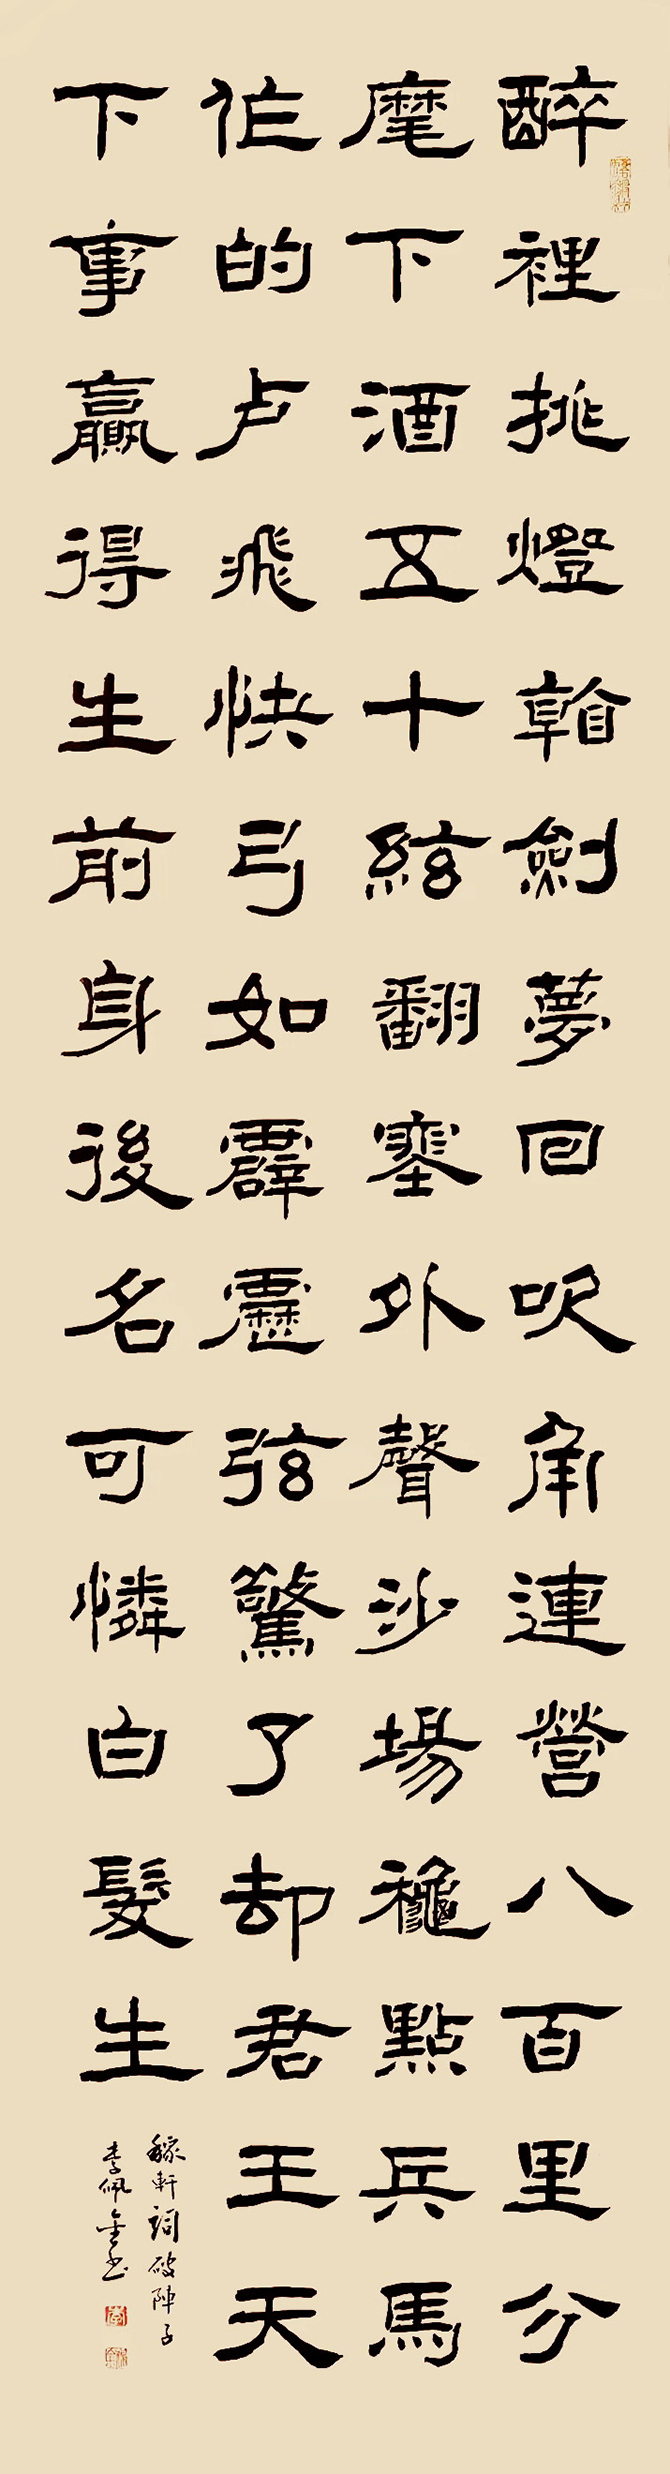 醉裡挑燈看劍夢回吹角連營八百里分
麾下酒五十絃翻塞外聲沙場穐點兵馬
作的卢飛快弓如霹靂弦驚了却君王天
下事贏得生前身後名可憐白髮生
稼軒詞破陣子
李佩金书